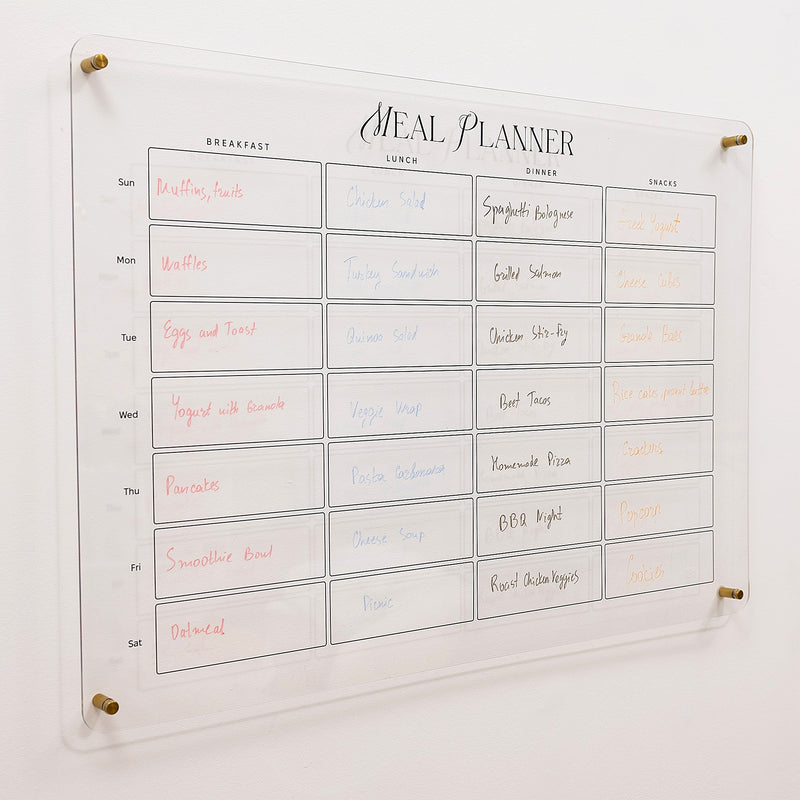 MEAL PLANNER
BREAKFAST LUNCH DINNER SNACKS
Sun Muffins, fruits Chicken Salad Spaghetti Bolognese Greek Yogurt
Mon Waffles Turkey Sandwich Grilled Salmon Cheese Cubes
Tue Eggs and Toast Quinoa Salad Chicken Stir-Fry Granola Bars
Wed Yogurt with Granola Veggie Wrap Beef Tacos Rice cakes, peanut butter
Thu Pancakes Pasta Carbonara Homemade Pizza Crackers
Fri Smoothie Bowl Cheese Soup BBQ Night Popcorn
Sat Oatmeal Picnic Roast Chicken Veggies Cookies